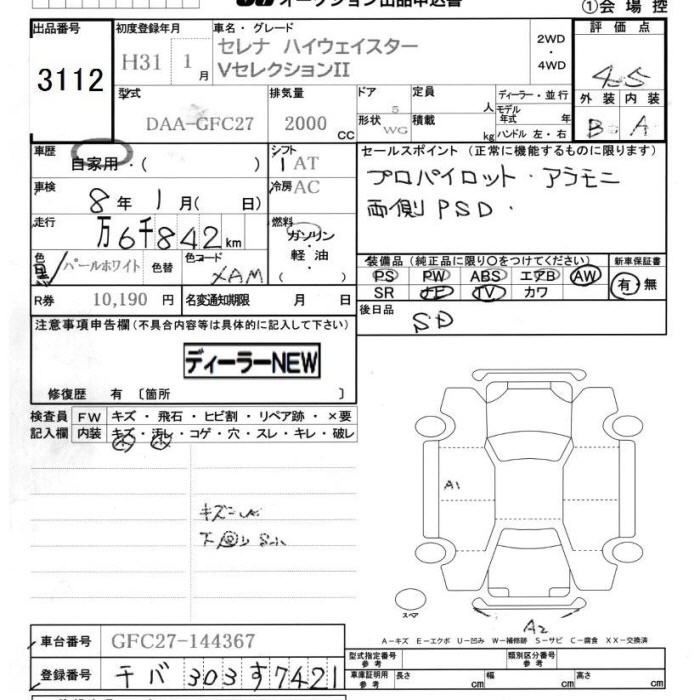 オークション出品申込書
①会場控
出品番号
3112
初度登録年月
H31 1月
車名・グレード
セレナ ハイウェイスター
VセレクションII
2WD
・
4WD
評価点
4.5
外装 内装
B A
型式
DAA-GFC27
排気量
2000 CC
ドア
5
定員
人
形状
WG
積載
kg
ディーラー・並行
モデル年式 年
ハンドル 左・右
車歴
自家用・( )
シフト
AT
車検
8年1月( 日)
冷房 AC
走行
万6千842km
燃料
ガソリン・軽油・( )
色
黒/パールホワイト
色替
色コード
XAM
R券 10,190 円
名変通知期限 月 日
セールスポイント (正常に機能するものに限ります)
プロパイロット・アラモニ
両側PSD・
装備品 (純正品に限り○をつけてください)
PS PW ABS エアB AW
SR ナビ TV カワ
新車保証書
有・無
後日品
SD
注意事項申告欄(不具合内容等は具体的に記入して下さい)
ディーラーNEW
修復歴 有〔箇所 〕
検査員記入欄
FW キズ・飛石・ヒビ割・リペア跡・×要
内装 キズ・汚レ・コゲ・穴・スレ・キレ・破レ
A1
スペア
A2
A-キズ E-エクボ U-凹み W-補修跡 S-サビ C-腐食 XX-交換済
車台番号 GFC27-144367
登録番号 千バ 303 す7421
型式指定番号 参考
類別区分番号 参考
車庫証明用 参考 長さ cm 幅 cm 高さ cm